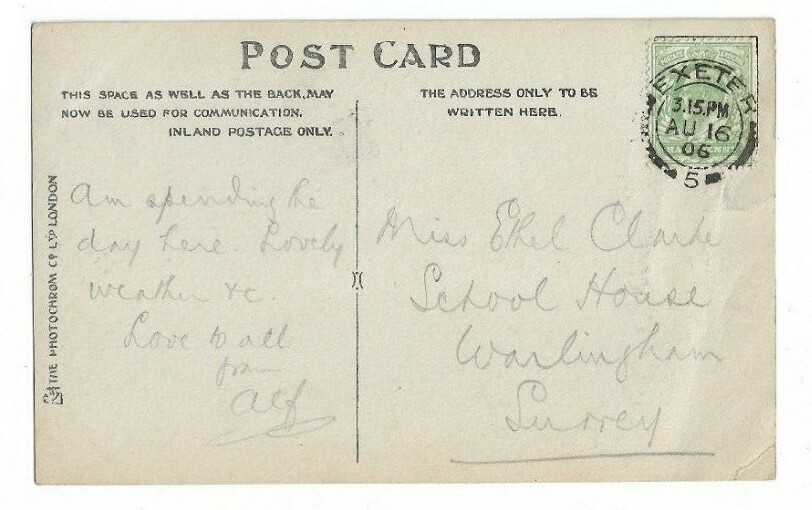 POST CARD
THIS SPACE AS WELL AS THE BACK, MAY
NOW BE USED FOR COMMUNICATION.
INLAND POSTAGE ONLY.
THE ADDRESS ONLY TO BE
WRITTEN HERE.
EXETER
3.15.PM
AU 16
06
5
THE PHOTOCHROM CO. LTD. LONDON
Am spending the
day here. Lovely
weather &c.
Love to all
from
Alf
Miss Ethel Clarke
School House
Warlingham
Surrey